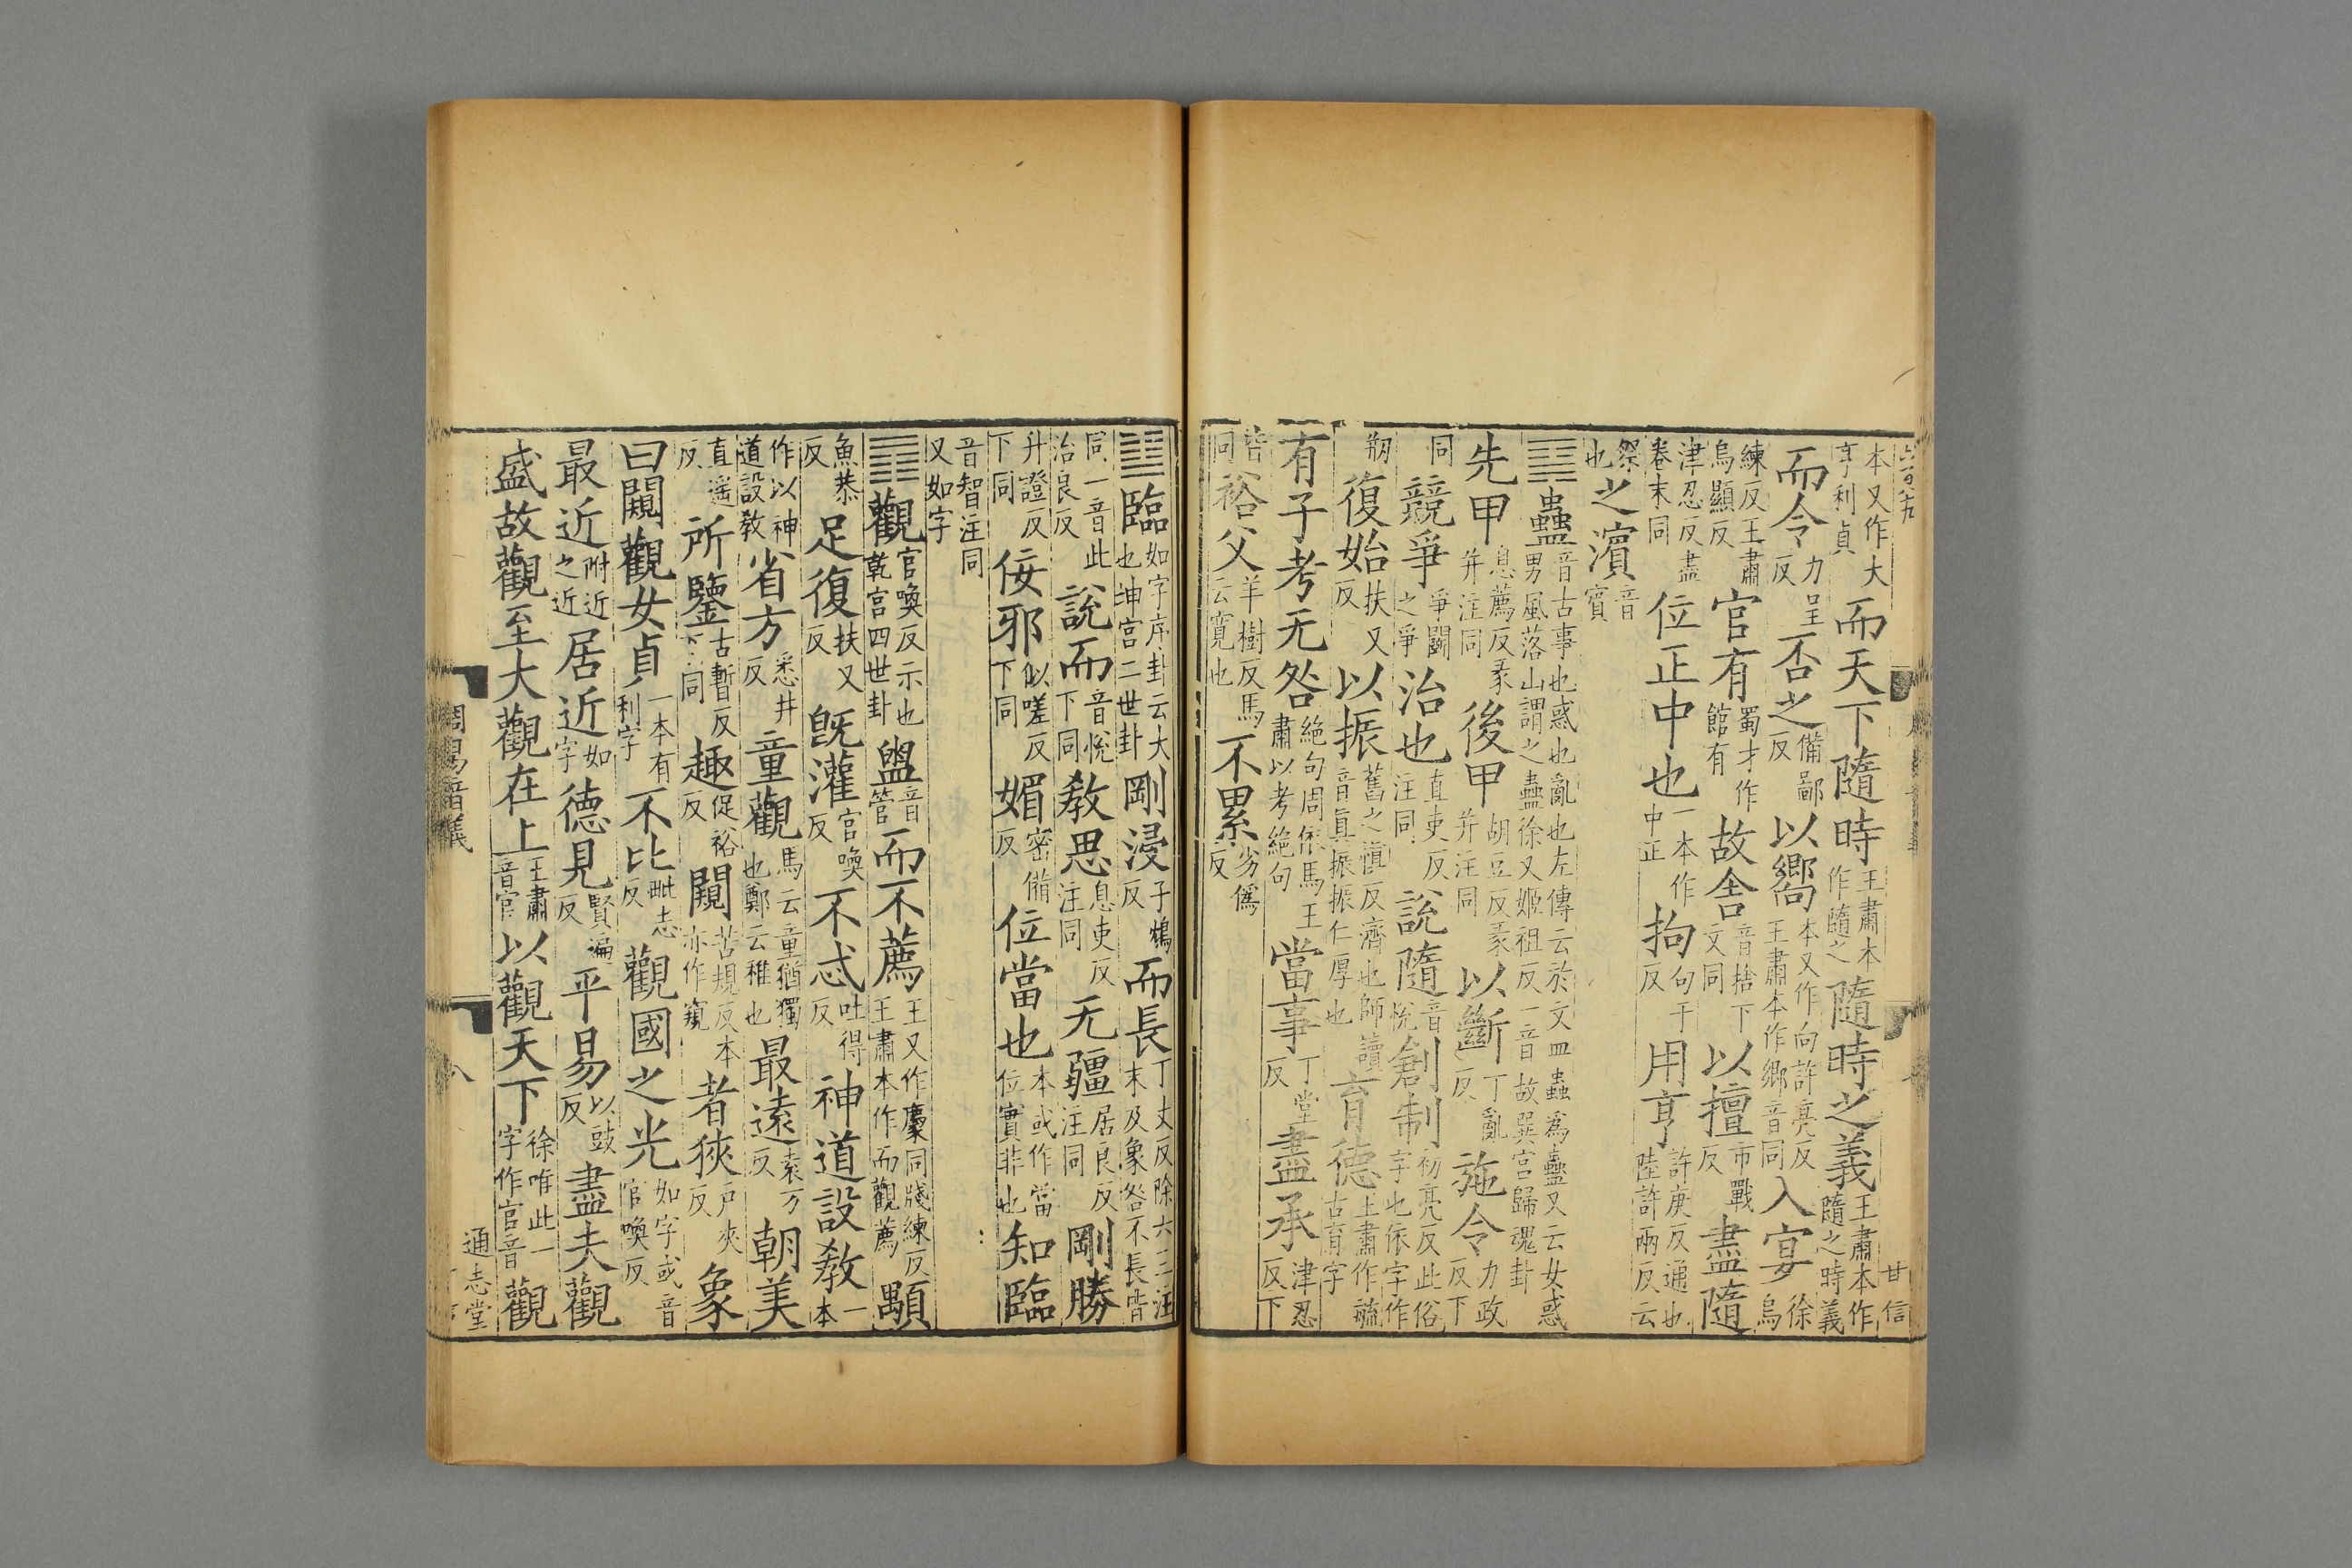 甘信
本又作大亨利貞而天下隨時王肅本作隨之隨時之義王肅本作隨之時義
而令力呈反否之備鄙反以嚮本又作向許亮反王肅本作鄉音同入宴徐烏
練反王肅烏顯反官有蜀才作館有故舍音捨下文同以擅市戰反盡隨
津忍反盡卷末同位正中也一本作中正拘句于反用亨許庚反通也陸許兩反云
祭也之濱音賓
䷑蠱音古事也惑也亂也左傳云於文皿蟲為蠱又云女惑男風落山謂之蠱徐又姬祖反一音故巽宮歸魂卦
先甲息薦反彖并注同後甲胡豆反彖并注同以斷丁亂反施令力政反下
同競爭爭鬬之爭治也直吏反注同說隨音悅創制初亮反此俗字也依字作
剏復始扶又反以振舊之慎反濟也師讀音真振振仁厚也育德王肅作毓古育字
有子考无咎絕句周依馬王肅以考絕句當事丁堂反盡承津忍反下
皆同裕父羊樹反馬云寬也不累劣偽反
䷒臨如字序卦云大也坤宮二世卦剛浸子鴆反而長丁丈反除六三注末及象咎不長皆
同一音此治良反說而音悅下同教思息吏反注同无疆居良反注同剛勝
升證反下同佞邪似嗟反下同媚密備反位當也本或作當位實非也知臨
音智注同又如字
䷓觀官喚反示也乾宮四世卦盥音管而不薦王又作䅽同牋練反王肅本作而觀薦顒
魚恭反足復扶又反既灌官喚反不忒吐得反神道設教一本
作以神道設教省方悉井反童觀馬云童猶獨也鄭云稚也最遠袁万反朝美
直遥反所鑒古暫反下同趣促裕反闚苦規反本亦作窺者狹戶夾反象
曰闚觀女貞一本有利字不比毗志反觀國之光如字或音官喚反
最近附近之近居近如字德見賢遍反平易以豉反盡夫觀
盛故觀至大觀在上王肅音官以觀天下徐唯此一字作官音觀
周易音義
八
通志堂